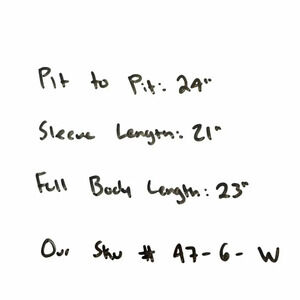 Pit to Pit: 24"
Sleeve Length: 21"
Full Body Length: 23"
Our Sku # A7-6-W